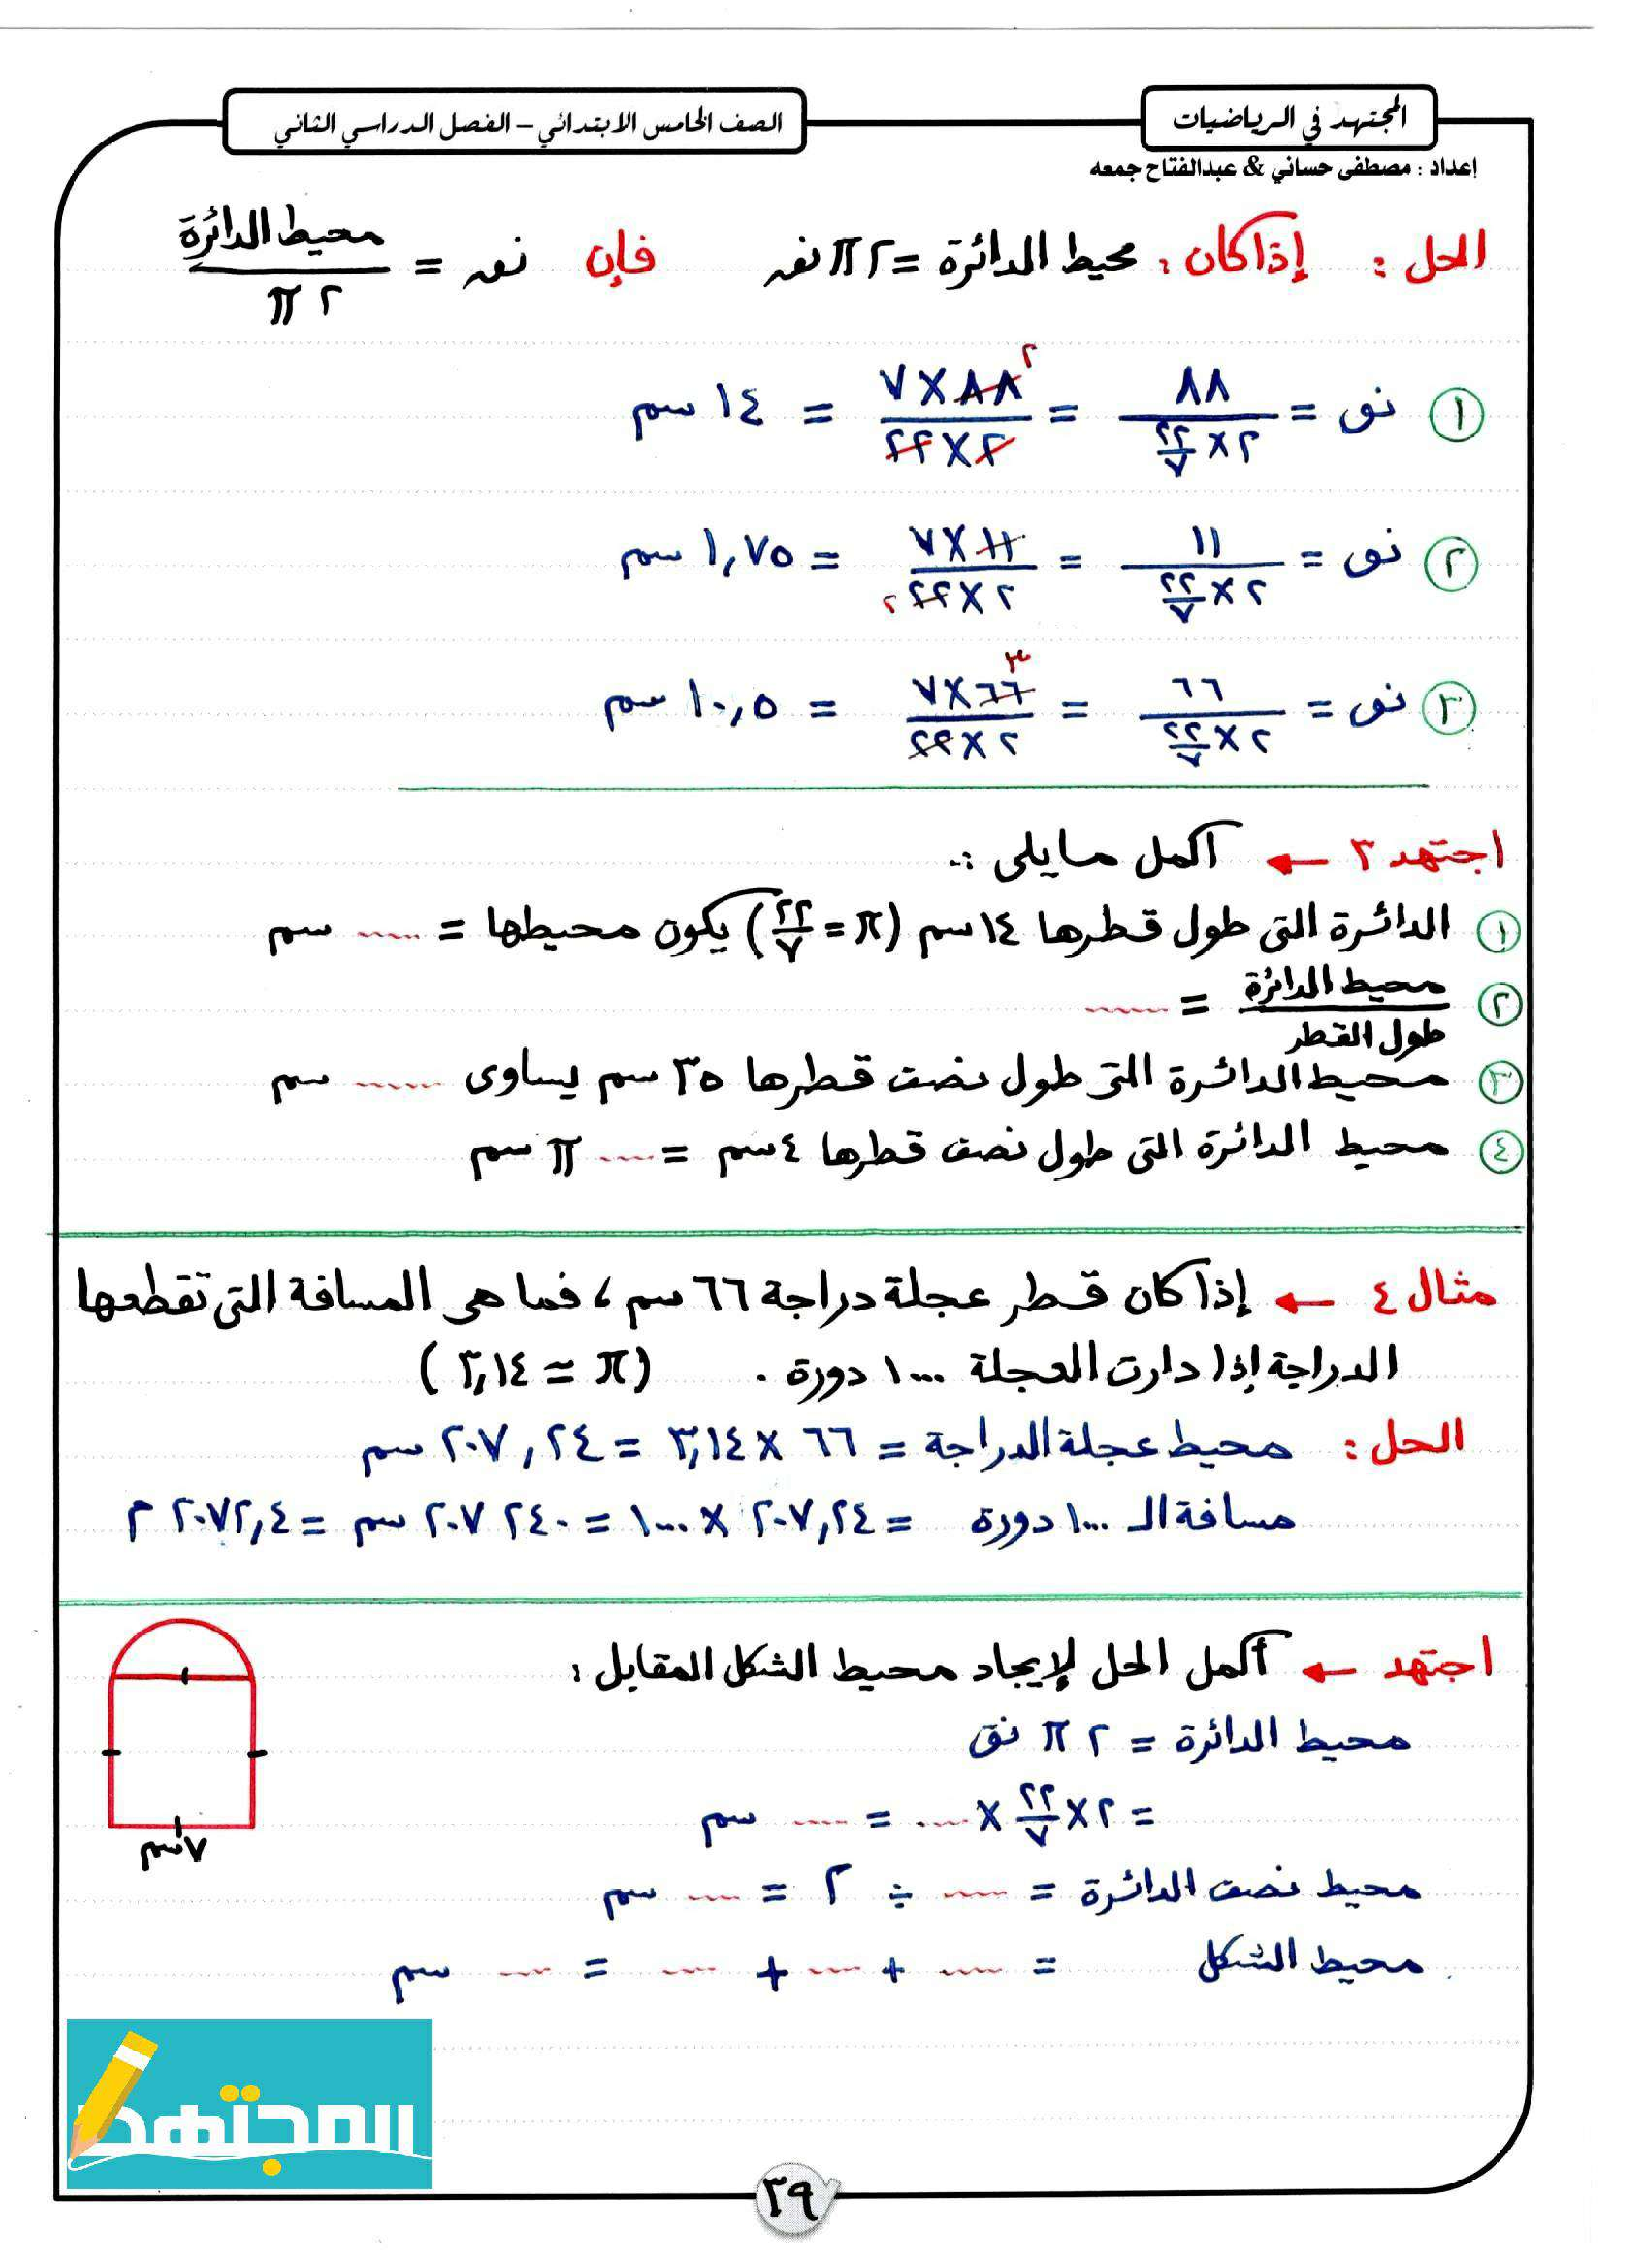 المجتهد في الرياضيات
الصف الخامس الابتدائي – الفصل الدراسي الثاني
إعداد : مصطفى حساني & عبدالفتاح جمعه
الحل : إذا كان : محيط الدائرة = ٢ π نق فإن نق = محيط الدائرة / ٢ π
١ نق = ٨٨ / (٢ × ٢٢/٧) = ٨٨ × ٧ / ٢ × ٢٢ = ١٤ سم
٢
٢ نق = ١١ / (٢ × ٢٢/٧) = ١١ × ٧ / ٢ × ٢٢ = ١,٧٥ سم
٢
٣ نق = ٦٦ / (٢ × ٢٢/٧) = ٦٦ × ٧ / ٢ × ٢٢ = ١٠,٥ سم
٣
اجتهد ٣ ← أكمل ما يلى :-
١ الدائرة التى طول قطرها ١٤ سم (π = ٢٢/٧) يكون محيطها = ...... سم
٢ محيط الدائرة / طول القطر = ......
٣ محيط الدائرة التى طول نصف قطرها ٣٥ سم يساوى ...... سم
٤ محيط الدائرة التى طول نصف قطرها ٤ سم = .... π سم
مثال ٤ ← إذا كان قطر عجلة دراجة ٦٦ سم ، فما هى المسافة التى تقطعها
الدراجة إذا دارت العجلة ١٠٠٠ دورة . (π ≈ ٣,١٤)
الحل : محيط عجلة الدراجة = ٦٦ × ٣,١٤ = ٢٠٧,٢٤ سم
مسافة الـ ١٠٠٠ دورة = ٢٠٧,٢٤ × ١٠٠٠ = ٢٠٧٢٤٠ سم = ٢٠٧٢,٤ م
اجتهد ← أكمل الحل لإيجاد محيط الشكل المقابل :
محيط الدائرة = ٢ π نق
= ٢ × ٢٢/٧ × .... = .... سم
٧ سم
محيط نصف الدائرة = .... ÷ ٢ = .... سم
محيط الشكل = .... + .... + .... = .... سم
المجتهد
٣٩